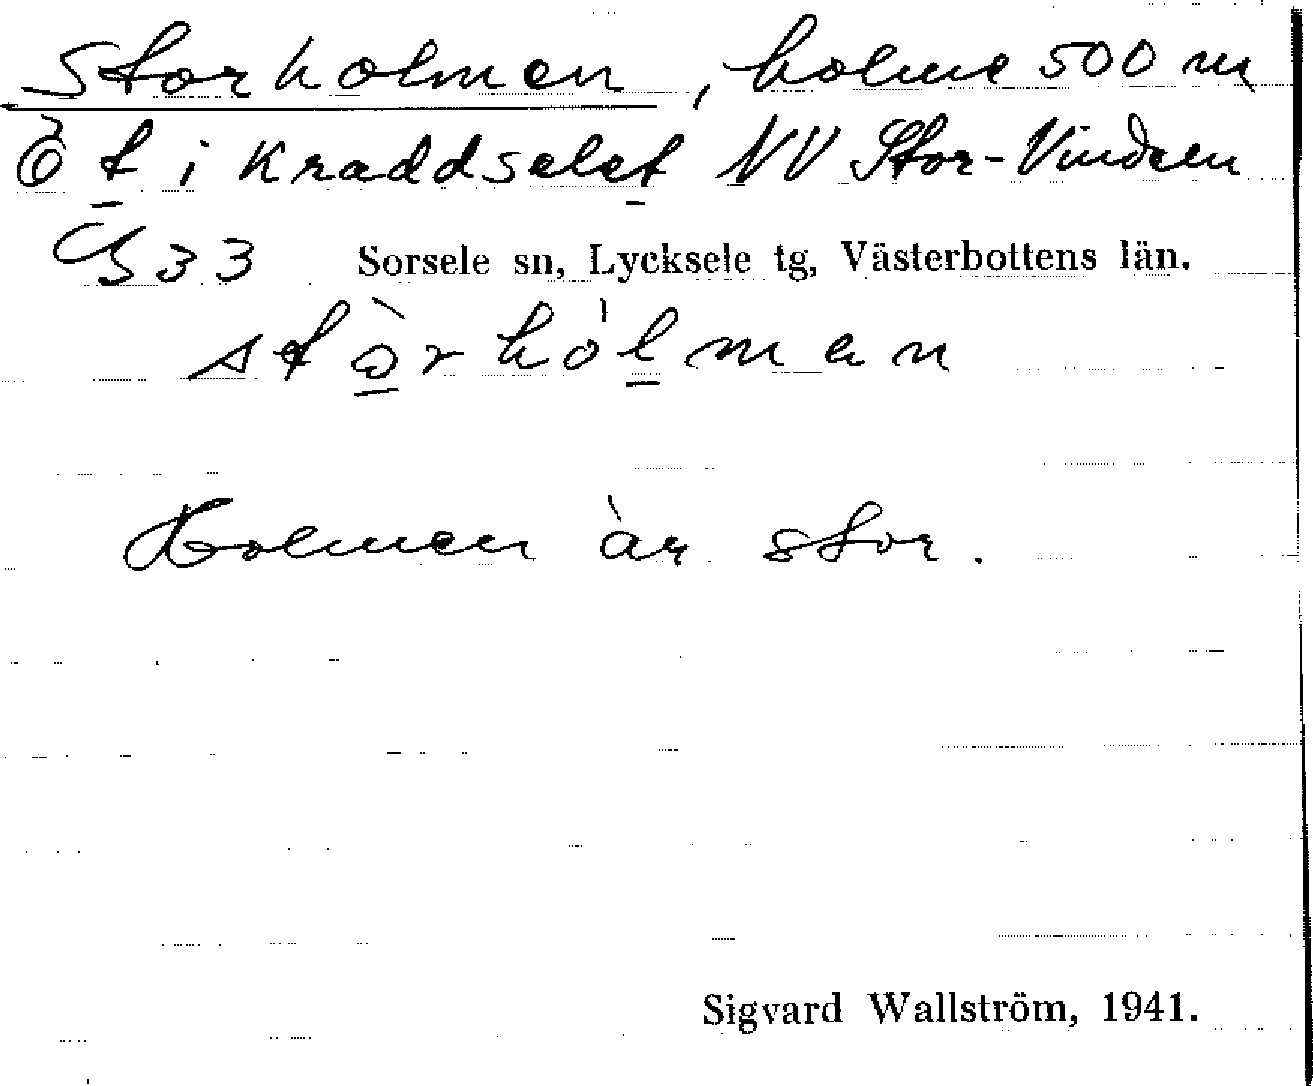 Storholmen, holme 500 m
Ö t i Kraddselet NV Stor-Vindeln
G33 Sorsele sn, Lycksele tg, Västerbottens län.
stò̱rhó̱lman
Holmen är stor.
Sigvard Wallström, 1941.